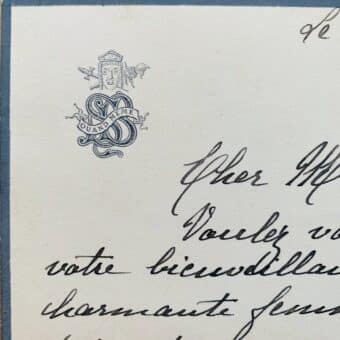 Le
QUAND MÊME
SB
Cher M
Voulez vo
votre bienveillan
charmante femm